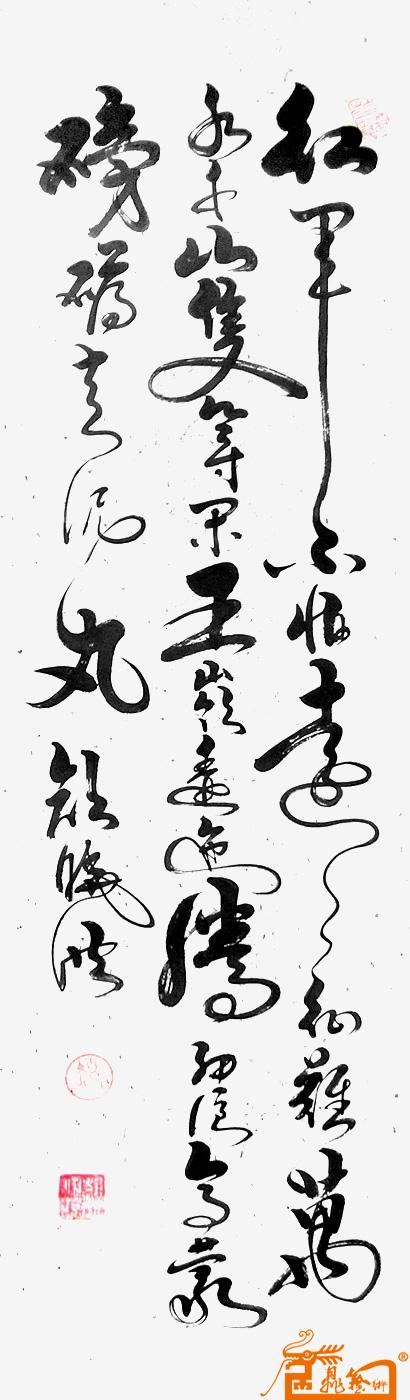 紅軍不怕遠征難萬
水千山隻等閑五嶺逶迤騰細浪烏蒙
磅礴走泥丸